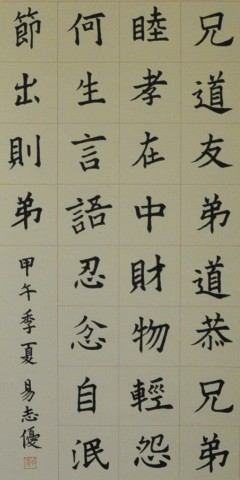 兄道友弟道恭兄弟
睦孝在中財物輕怨
何生言語忍忿自泯
節出則弟
甲午季夏易志優